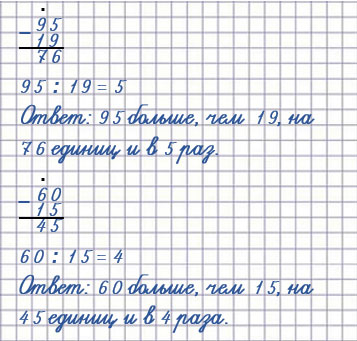 95
− 19
76
95 : 19 = 5
Ответ: 95 больше, чем 19, на
76 единиц и в 5 раз.
60
− 15
45
60 : 15 = 4
Ответ: 60 больше, чем 15, на
45 единиц и в 4 раза.